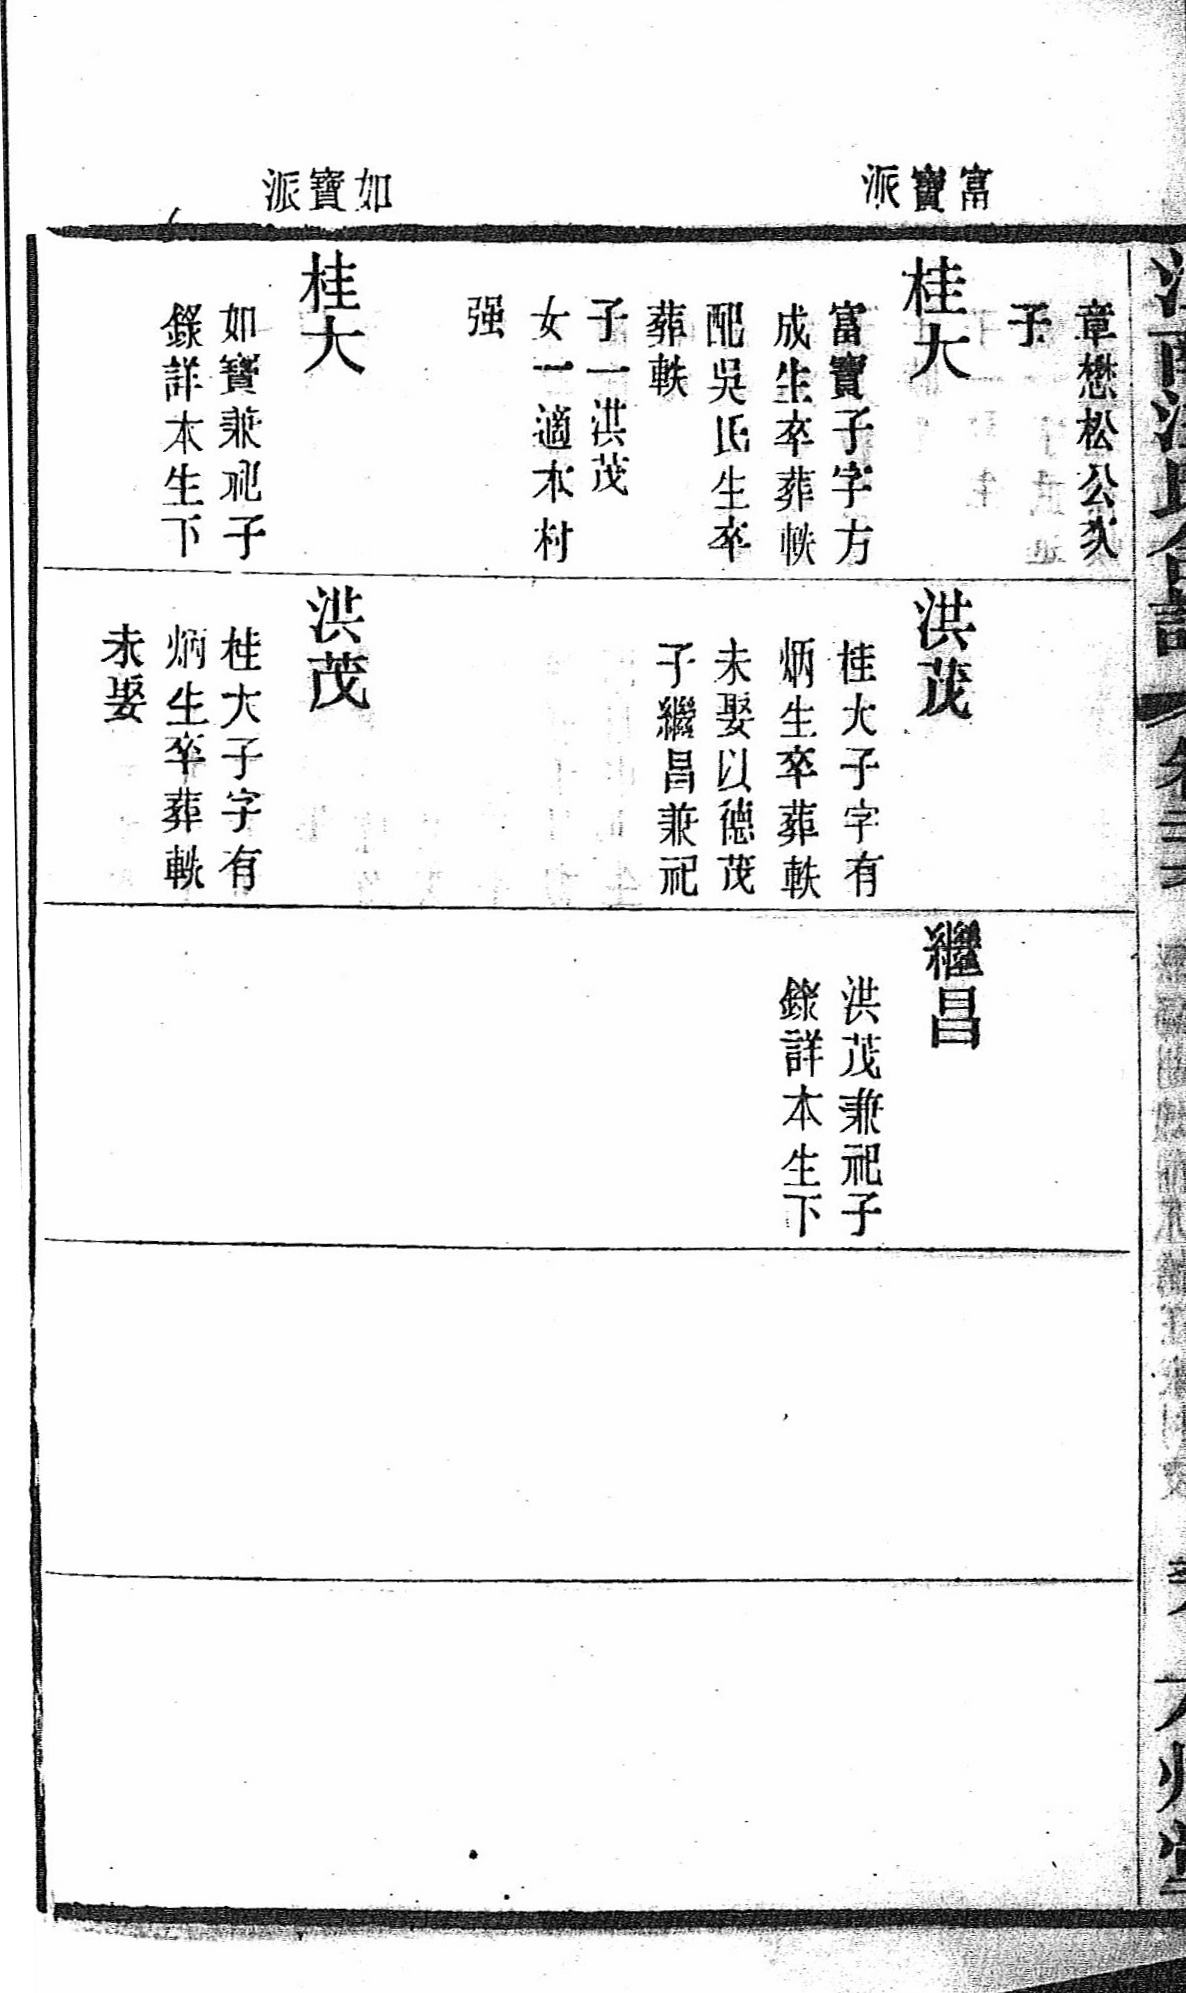 富寶派
如寶派
章懋松公次
子
桂大
富寶子字方
成生卒葬軼
配吳氏生卒
葬軼
子一洪茂
女一適水村
强
桂大
如寶兼祀子
錄詳本生下
洪茂
桂大子字有
炳生卒葬軼
未娶以德茂
子繼昌兼祀
洪茂
桂大子字有
炳生卒葬軼
未娶
繼昌
洪茂兼祀子
錄詳本生下